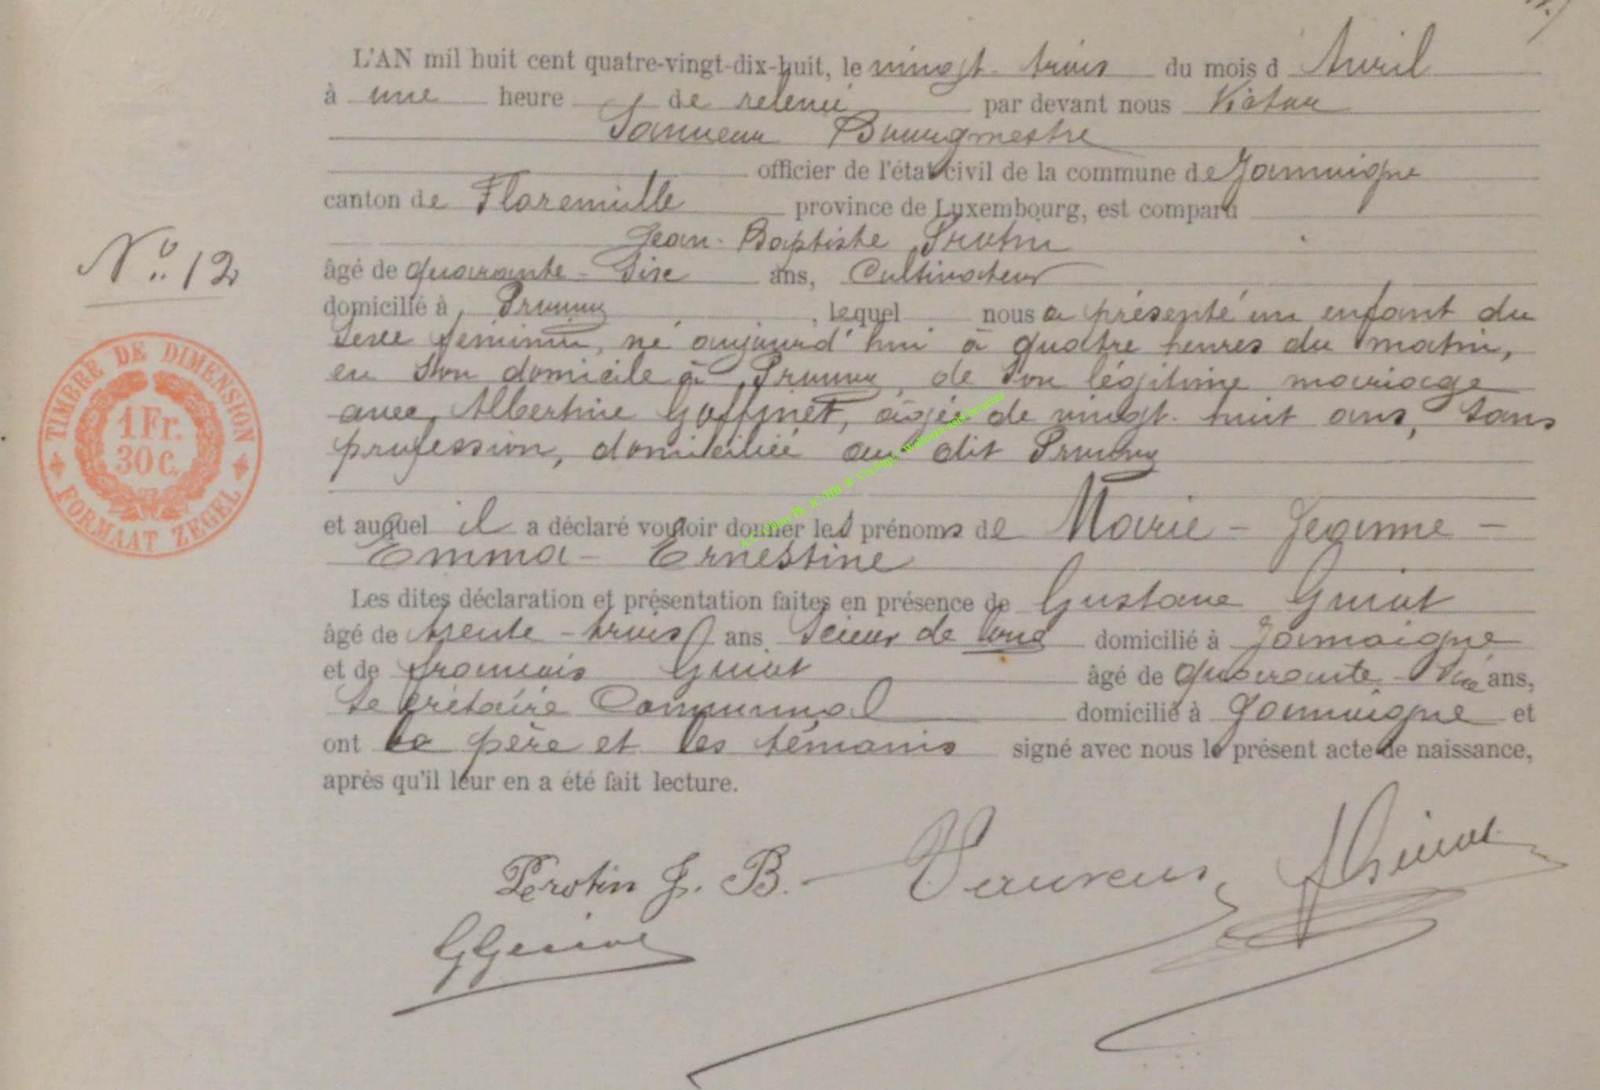 L'AN mil huit cent quatre-vingt-dix-huit, le vingt-trois du mois d'Avril
à une heure de relevée par devant nous Victor
Bourgmestre
officier de l'état civil de la commune de Jamoigne
canton de Florenville province de Luxembourg, est comparu
Jean-Baptiste Protin
N° 12
âgé de quarante-six ans, Cultivateur
domicilié à Prouvy, lequel nous a présenté un enfant du
sexe féminin, né aujourd'hui à quatre heures du matin,
en son domicile à Prouvy, de son légitime mariage
avec Albertine Goffinet, âgée de vingt-huit ans, sans
profession, domiciliée au dit Prouvy
TIMBRE DE DIMENSION
1 Fr.
30 C.
FORMAAT ZEGEL
et auquel il a déclaré vouloir donner les prénoms de Marie - Jeanne -
Emma - Ernestine
Les dites déclaration et présentation faites en présence de Gustave
âgé de trente-trois ans Scieur de long domicilié à Jamoigne
et de françois âgé de quarante-six ans,
Secrétaire Communal domicilié à Jamoigne et
ont le père et les témoins signé avec nous le présent acte de naissance,
après qu'il leur en a été fait lecture.
Perotin J. B.